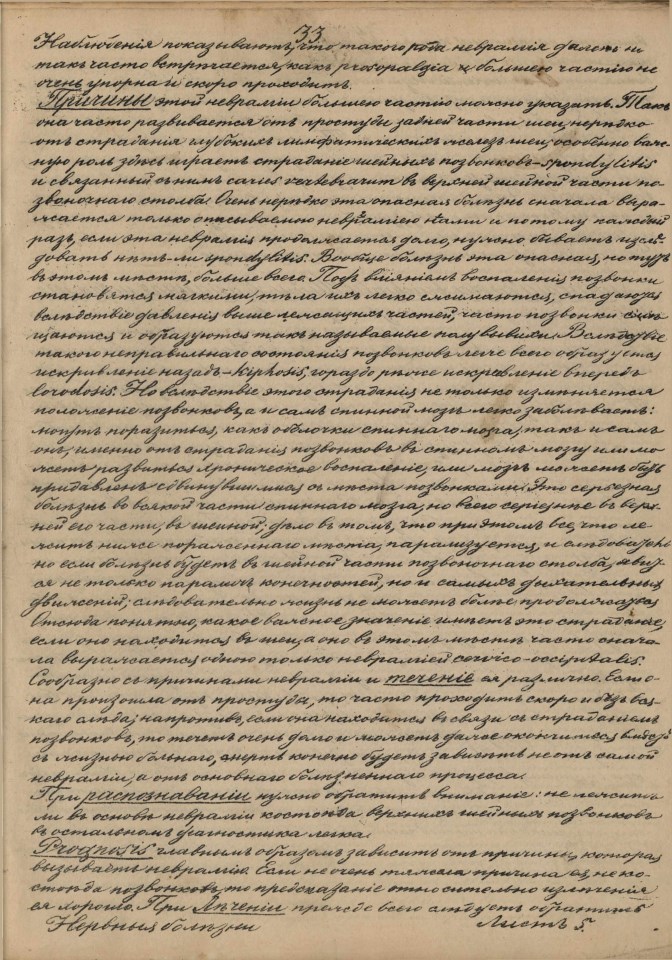 33
Наблюденія показываютъ, что такого рода невралгія далеко не
такъ часто встрѣчается, какъ prosopalgia и большею частію не
очень упорна и скоро проходитъ.
Причины этой невралгіи большею частію можно указать. Такъ
она часто развивается отъ простуды задней части шеи, нерѣдко
отъ страданія глубокихъ лимфатическихъ железъ шеи, особенно важ-
ную роль здѣсь играетъ страданіе шейныхъ позвонковъ - spondylitis
и связанный съ нимъ caries vertebrarum въ верхней шейной части по-
звоночнаго столба. Очень нерѣдко эта опасная болѣзнь сначала выра-
жается только описываемою невралгіею и потому каждый
разъ, если эта невралгія продолжается долго, нужно бываетъ изслѣ-
довать нѣтъ-ли spondylitis. Вообще болѣзнь эта опасная, но тутъ
въ этомъ мѣстѣ, больше всего. Подъ вліяніемъ воспаленія позвонки
становятся мягкими, тѣла ихъ легко сжимаются, спадаются
вслѣдствіе давленія выше лежащихъ частей, часто позвонки смѣ-
щаются и образуются такъ называемые полувывихи. Вслѣдствіе
такого неправильнаго состоянія позвонковъ легче всего образуется
искривленіе назадъ - kiphosis, гораздо рѣже искривленіе впередъ
lorodosis. Но вслѣдствіе этого страданія не только измѣняется
положеніе позвонковъ, а и самъ спинной мозгъ легко заболѣваетъ:
могутъ поразиться, какъ оболочки спиннаго мозга, такъ и самъ
онъ; именно отъ страданія позвонковъ въ спинномъ мозгу или мо-
жетъ развиться хроническое воспаленіе, или мозгъ можетъ быть
придавленъ сдвинувшимися съ мѣста позвонками. Это серьезная
болѣзнь во всякой части спиннаго мозга, но всего серьезнѣе въ верх-
ней его части, въ шейной; дѣло въ томъ, что при этомъ все, что ле-
житъ ниже пораженнаго мѣста, парализуется, и слѣдователь-
но если болѣзнь будетъ въ шейной части позвоночнаго столба, явит-
ся не только параличъ конечностей, но и самыхъ дыхательныхъ
движеній; слѣдовательно жизнь не можетъ болѣе продолжаться
Отсюда понятно, какое важное значеніе имѣетъ это страданіе,
если оно находится въ шеи, а оно въ этомъ мѣстѣ часто снача-
ла выражается одною только невралгіей cervico-occipitalis.
Сообразно съ причинами невралгіи и теченіе ея различно. Если о-
на произошла отъ простуды, то часто проходитъ скоро и безъ вся-
каго слѣда; напротивъ, если она находится въ связи съ страданіемъ
позвонковъ, то течетъ очень долго и можетъ даже окончиться вмѣстѣ
съ жизнью больнаго, смерть конечно будетъ зависѣть не отъ самой
невралгіи, а отъ основнаго болѣзненнаго процесса.
При распознаваніи нужно обратить вниманіе: не лежитъ
ли въ основѣ невралгіи костоѣда верхнихъ шейныхъ позвонковъ
въ остальномъ діагностика легка.
Prognosis главнымъ образомъ зависитъ отъ причины, которая
вызываетъ невралгію. Если не очень тяжела причина ея, не ко-
стоѣда позвонковъ, то предсказаніе относительно излѣченія
ея хорошо. При Лѣченіи прежде всего слѣдуетъ обратить
Нервныя болѣзни Листъ 5.